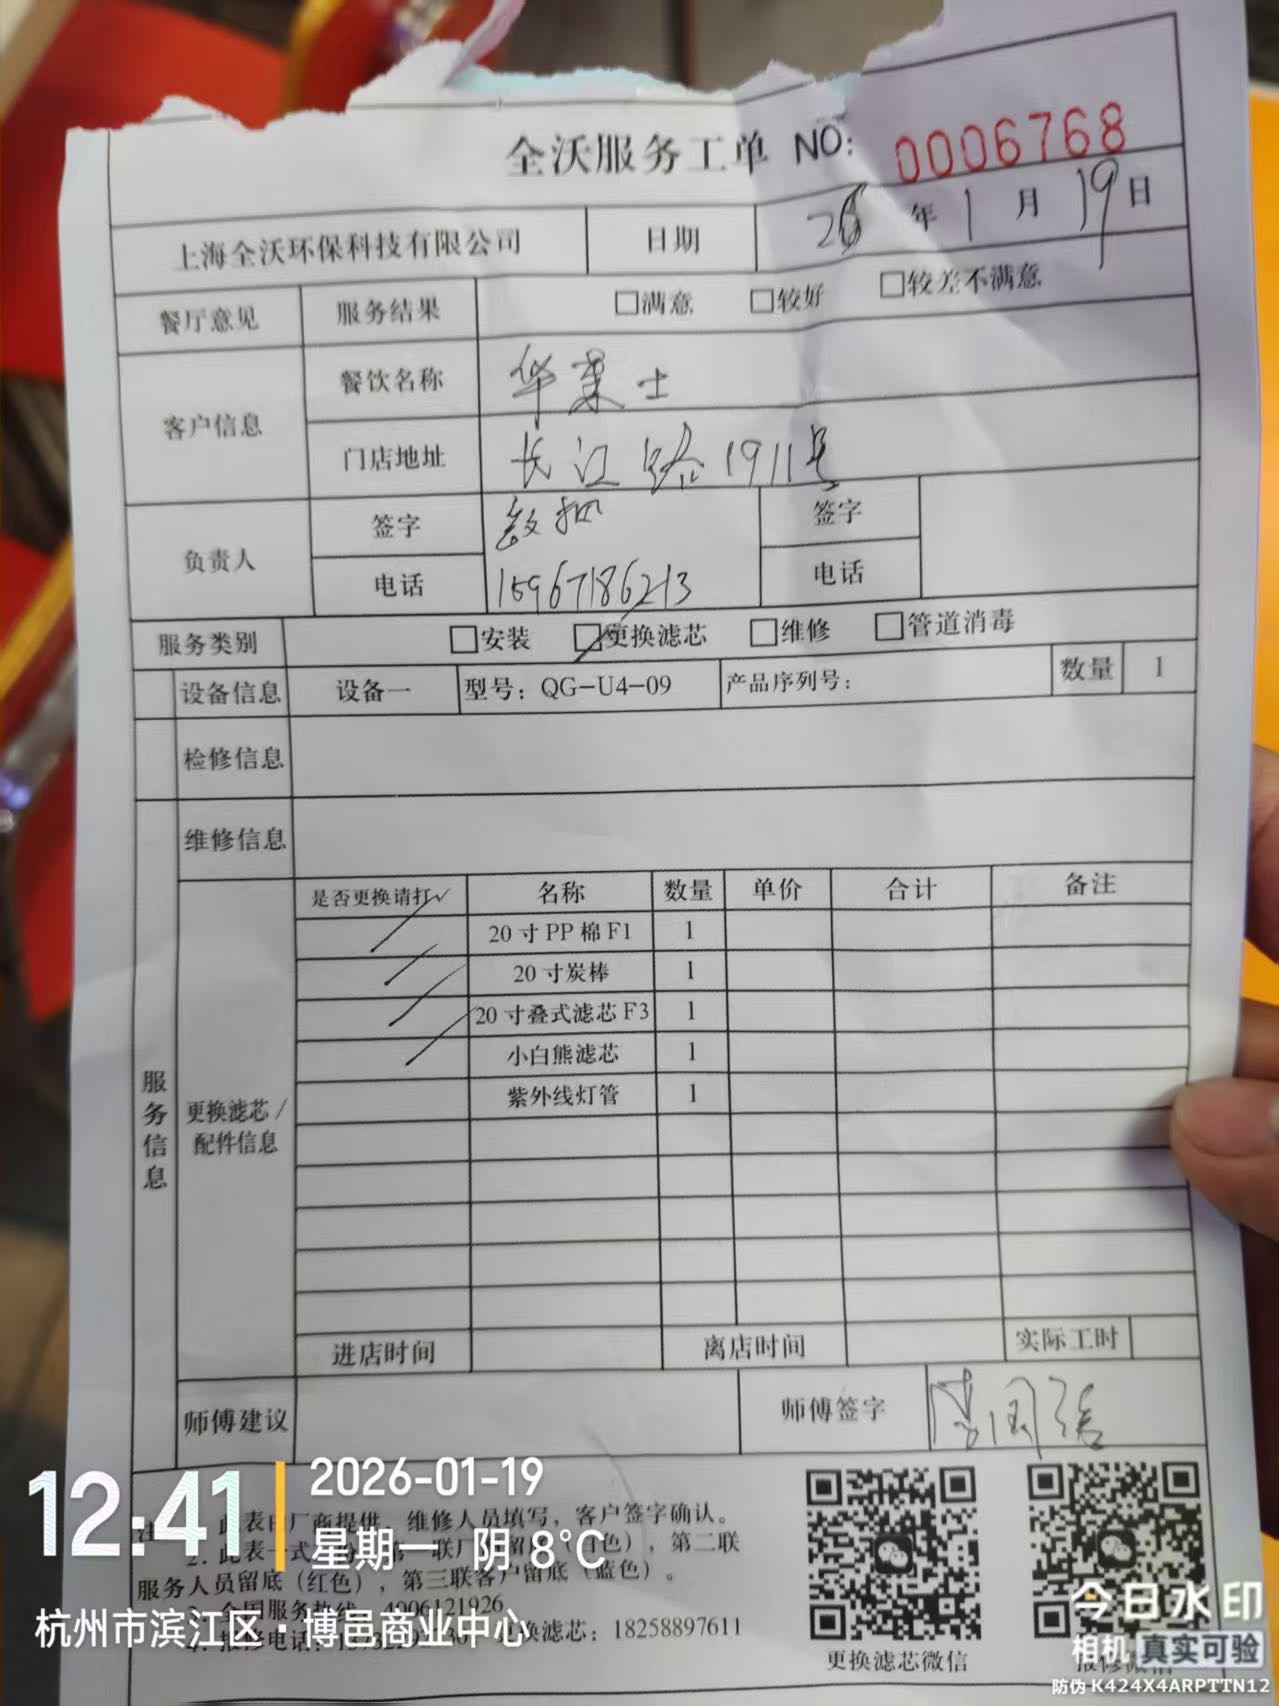 全沃服务工单 NO: 0006768
上海全沃环保科技有限公司 日期 26年1月19日
餐厅意见 服务结果 □满意 □较好 □较差不满意
客户信息 餐饮名称 华莱士
门店地址 长江路1911号
负责人 签字 签字
电话 15967186213 电话
服务类别 □安装 □更换滤芯 □维修 □管道消毒
设备信息 设备一 型号：QG-U4-09 产品序列号： 数量 1
检修信息
维修信息
服务信息
更换滤芯/配件信息
是否更换请打✓ 名称 数量 单价 合计 备注
20寸PP棉F1 1
20寸炭棒 1
20寸叠式滤芯F3 1
小白熊滤芯 1
紫外线灯管 1
进店时间 离店时间 实际工时
师傅建议 师傅签字
此表由厂商提供，维修人员填写，客户签字确认。
2. 此表一式 第一联厂 （白色），第二联
服务人员留底（红色），第三联客户留底（蓝色）。
全国服务热线：4006121926
4. 报修电话： 更换滤芯：18258897611
更换滤芯微信 报修微信
12:41
2026-01-19
星期一 阴 8°C
杭州市滨江区·博邑商业中心
今日水印
相机 真实可验
防伪 K424X4ARPTTN12